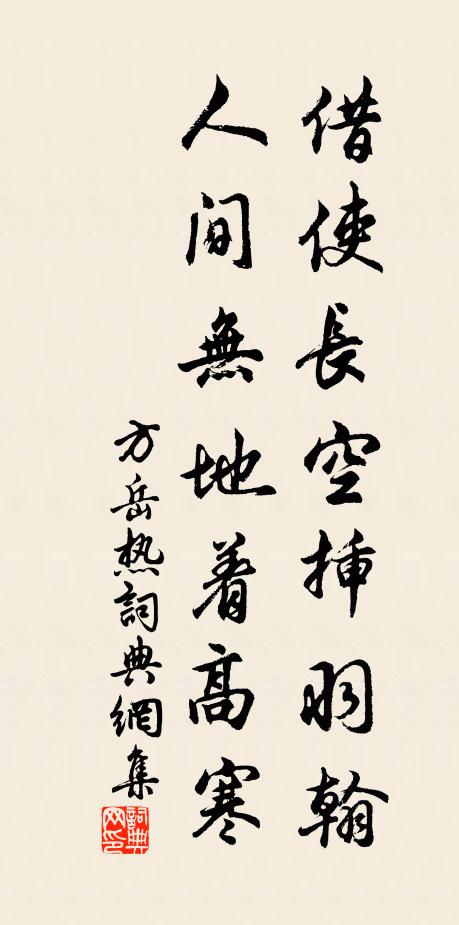 借使長空插羽翰
人間無地着高寒
方岳热詞典網集
詞典网印